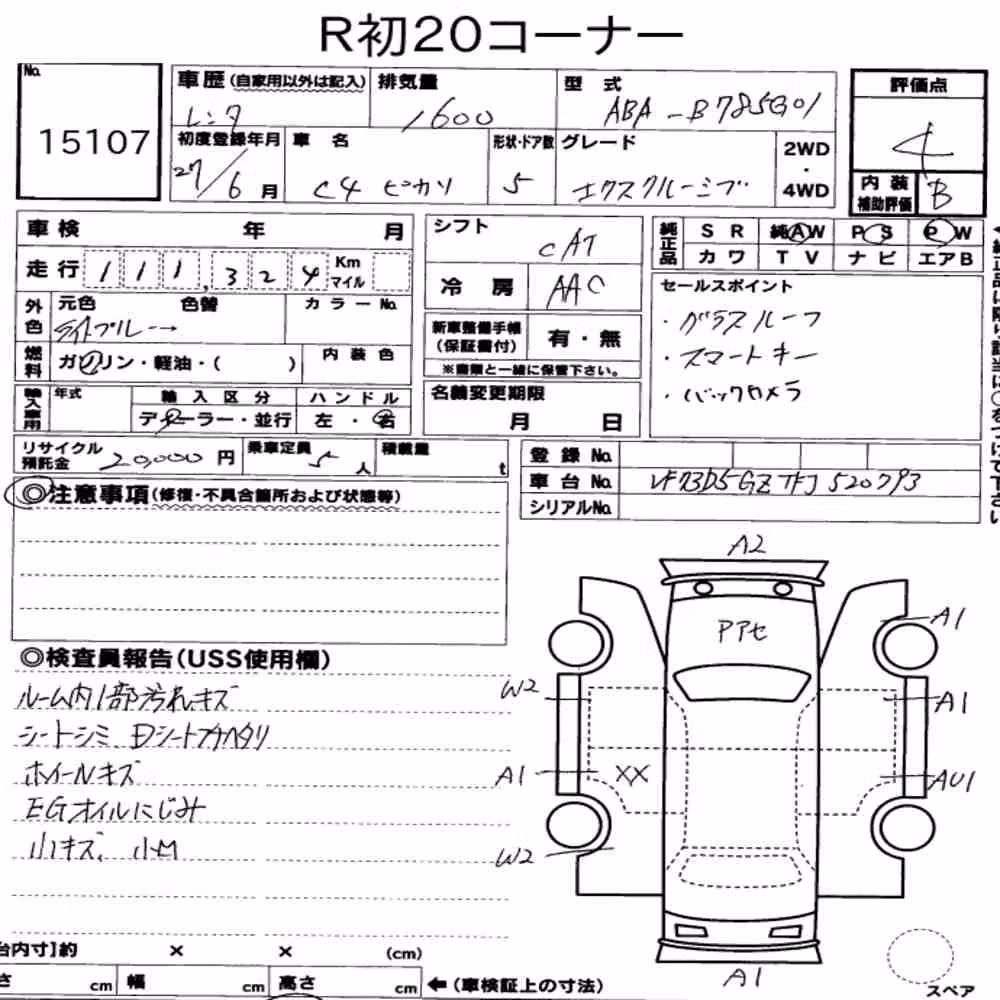 R初20コーナー
No. 15107
車歴(自家用以外は記入) レンタ
排気量 1600
型式 ABA-B785G01
評価点 4
初度登録年月 27/6月
車名 C4 ピカソ
形状・ドア数 5
グレード エクスクルーシブ
2WD・4WD
内装補助評価 B
車検 年 月
走行 111,324 Km マイル
外色 元色 ライトブルー→ 色替 カラーNo.
燃料 ガソリン・軽油・( ) 内装色
輸入車用 年式 輸入区分 ディーラー・並行 ハンドル 左・右
シフト CAT
冷房 AAC
新車整備手帳(保証書付) 有・無
※書類と一緒に保管下さい。
名義変更期限 月 日
純正品 SR 純AW PS PW
カワ TV ナビ エアB
セールスポイント
・ガラスルーフ
・スマートキー
・バックカメラ
リサイクル預託金 20,000円
乗車定員 5人
積載量 t
登録No.
車台No. VF73D5GZTFJ520793
シリアルNo.
◎注意事項(修復・不具合箇所および状態等)
◎検査員報告(USS使用欄)
ルーム内1部汚れキズ
シートシミ Dシートカワヘタリ
ホイールキズ
EGオイルにじみ
小キズ、小凹
A2
Pアセ
A1
W2
A1
A1
XX
AU1
W2
A1
台内寸]約 × × (cm)
さ cm 幅 cm 高さ cm ←(車検証上の寸法)
スペア